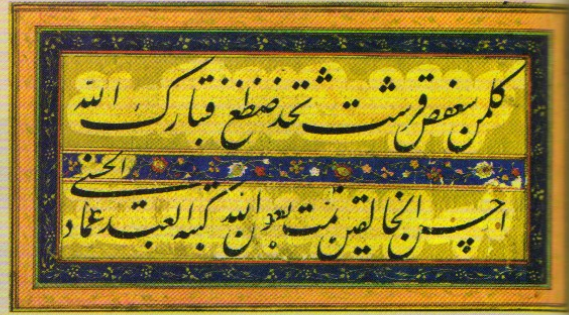 کلمن سعفص قرشت ثخذ ضظغ فتبارک الله
احسن الخالقین تمت بعون الله کتبه العبد عماد
الحسنی